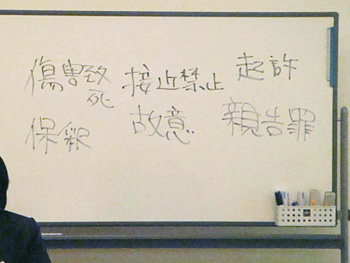 傷害致死
接近禁止
起訴
保釈
故意
親告罪